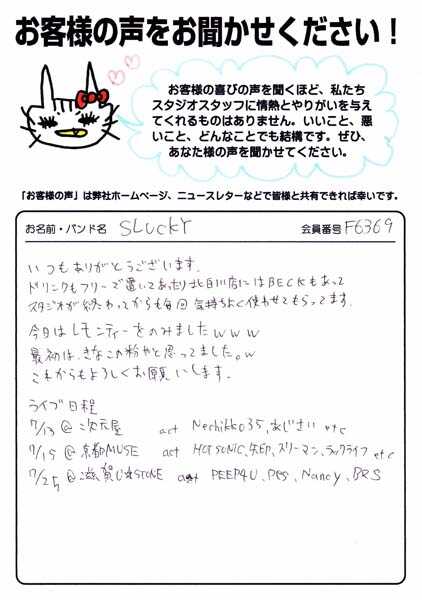 お客様の声をお聞かせください！
お客様の喜びの声を聞くほど、私たち
スタジオスタッフに情熱とやりがいを与え
てくれるものはありません。いいこと、悪
いこと、どんなことでも結構です。ぜひ、
あなた様の声を聞かせてください。
「お客様の声」は弊社ホームページ、ニュースレターなどで皆様と共有できれば幸いです。
お名前・バンド名 SLUCKY 会員番号 F6369
いつもありがとうございます。
ドリンクもフリーで置いてあったり北白川店にはBECKもあって
スタジオが終わってからも毎回気持ちよく使わせてもらってます。
今日はレモンティーをのみましたｗｗｗ
最初は、きなこの粉かと思ってました。ｗ
これからもよろしくお願いします。
ライブ日程
7/13 @二次元屋 act Nechikko35、あじさい etc
7/15 @京都MUSE act HOT SONIC、スリーマン、ラックライフ etc
7/25 @滋賀B☆STONE act PEEP4U、Pes、Nancy、BRS